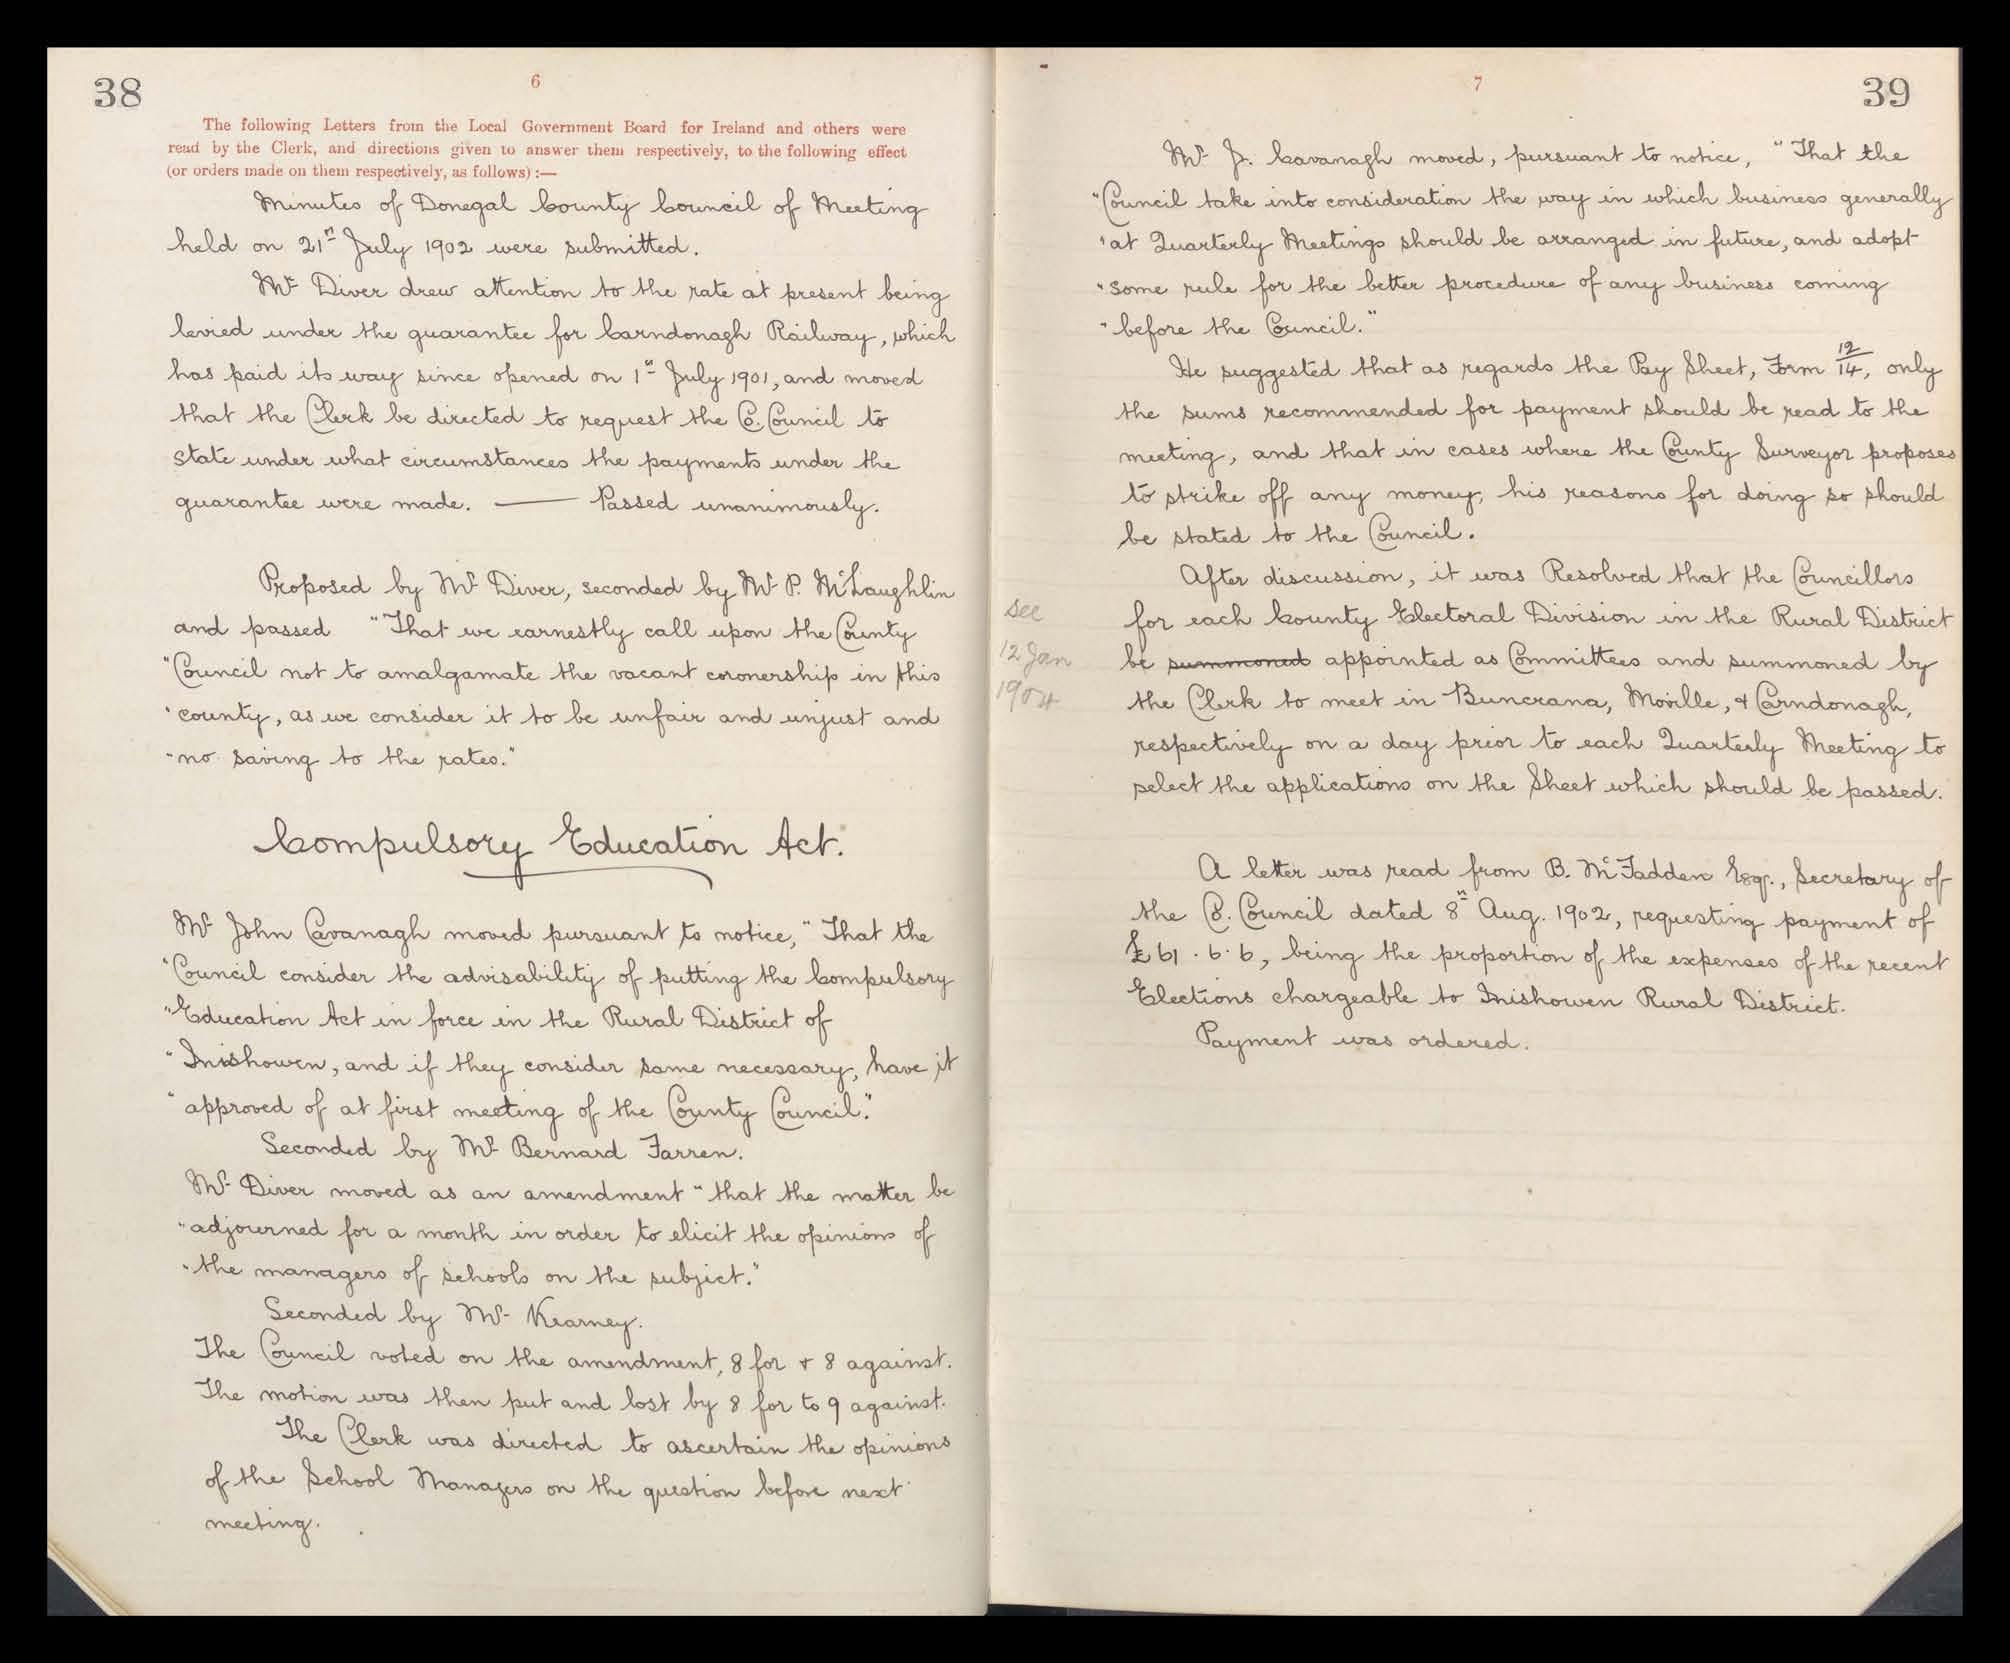 38
6
The following Letters from the Local Government Board for Ireland and others were
read by the Clerk, and directions given to answer them respectively, to the following effect
(or orders made on them respectively, as follows) :—
Minutes of Donegal County Council of Meeting
held on 21st July 1902 were submitted.
Mr Diver drew attention to the rate at present being
levied under the guarantee for Carndonagh Railway, which
has paid its way since opened on 1st July 1901, and moved
that the Clerk be directed to request the Co. Council to
state under what circumstances the payments under the
guarantee were made. —— Passed unanimously.
Proposed by Mr Diver, seconded by Mr P. McLaughlin
and passed "That we earnestly call upon the County
"Council not to amalgamate the vacant coronership in this
"county, as we consider it to be unfair and unjust and
"no saving to the rates."
Compulsory Education Act.
Mr John Cavanagh moved pursuant to notice, "That the
"Council consider the advisability of putting the Compulsory
"Education Act in force in the Rural District of
"Inishowen, and if they consider same necessary, have it
"approved of at first meeting of the County Council."
Seconded by Mr Bernard Farren.
Mr Diver moved as an amendment "that the matter be
"adjourned for a month in order to elicit the opinions of
"the managers of schools on the subject."
Seconded by Mr Kearney.
The Council voted on the amendment, 8 for & 8 against.
The motion was then put and lost by 8 for to 9 against.
The Clerk was directed to ascertain the opinions
of the School Managers on the question before next
meeting.
7
39
Mr J. Cavanagh moved, pursuant to notice, "That the
"Council take into consideration the way in which business generally
"at Quarterly Meetings should be arranged in future, and adopt
"some rule for the better procedure of any business coming
"before the Council."
He suggested that as regards the Pay Sheet, Form 12/14, only
the sums recommended for payment should be read to the
meeting, and that in cases where the County Surveyor proposes
to strike off any money, his reasons for doing so should
be stated to the Council.
After discussion, it was Resolved that the Councillors
for each County Electoral Division in the Rural District
be summoned appointed as Committees and summoned by
the Clerk to meet in Buncrana, Moville, & Carndonagh,
respectively on a day prior to each Quarterly Meeting to
select the applications on the Sheet which should be passed.
see
12 Jan
1904
A letter was read from B. McFadden Esqr., Secretary of
the Co. Council dated 8th Aug. 1902, requesting payment of
£61.6.6, being the proportion of the expenses of the recent
Elections chargeable to Inishowen Rural District.
Payment was ordered.